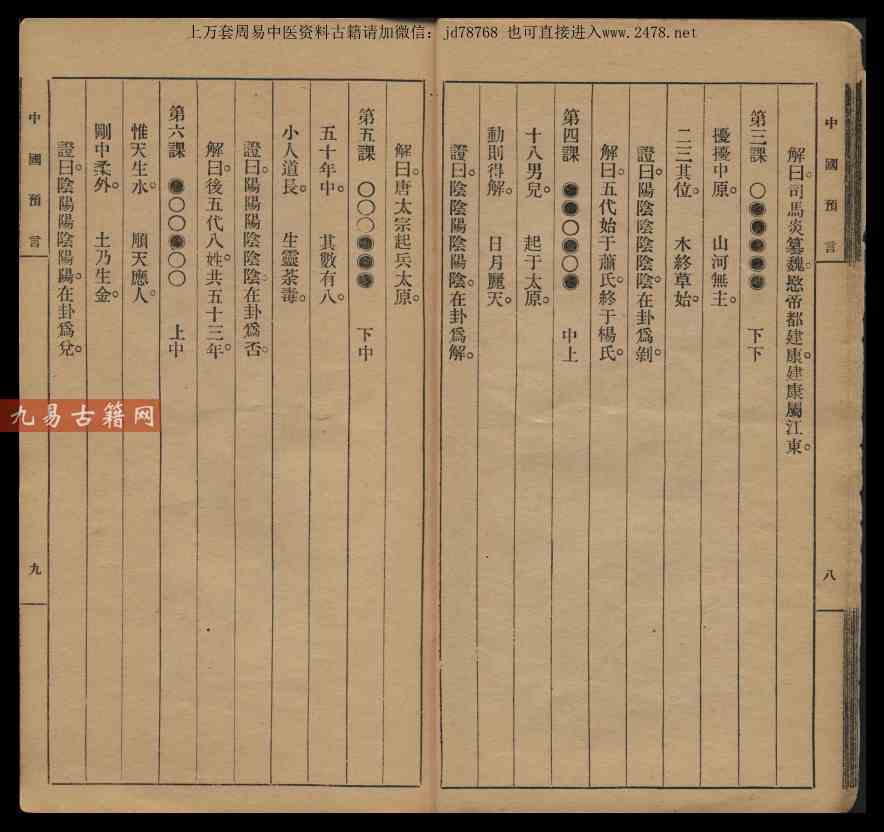 上万套周易中医资料古籍请加微信：jd78768 也可直接进入www.2478.net
中國預言
八
解曰。司馬炎篡魏。愍帝都建康。建康屬江東。
第三課 ○●●●●● 下下
擾擾中原。 山河無主。
二三其位。 木終草始。
證曰。陽陰陰陰陰陰。在卦爲剝。
解曰。五代始于蕭氏。終于楊氏。
第四課 ●●○●○● 中上
十八男兒。 起于太原。
動則得解。 日月麗天。
證曰。陰陰陽陰陽陰。在卦爲解。
解曰。唐太宗起兵太原。
第五課 ○○○●●● 下中
五十年中。 其數有八。
小人道長。 生靈荼毒。
證曰。陽陽陽陰陰陰。在卦爲否。
解曰。後五代八姓。共五十三年。
第六課 ●○○●○○ 上中
惟天生水。 順天應人。
剛中柔外。 土乃生金。
證曰。陰陽陽陰陽陽。在卦爲兌。
中國預言
九
九易古籍网